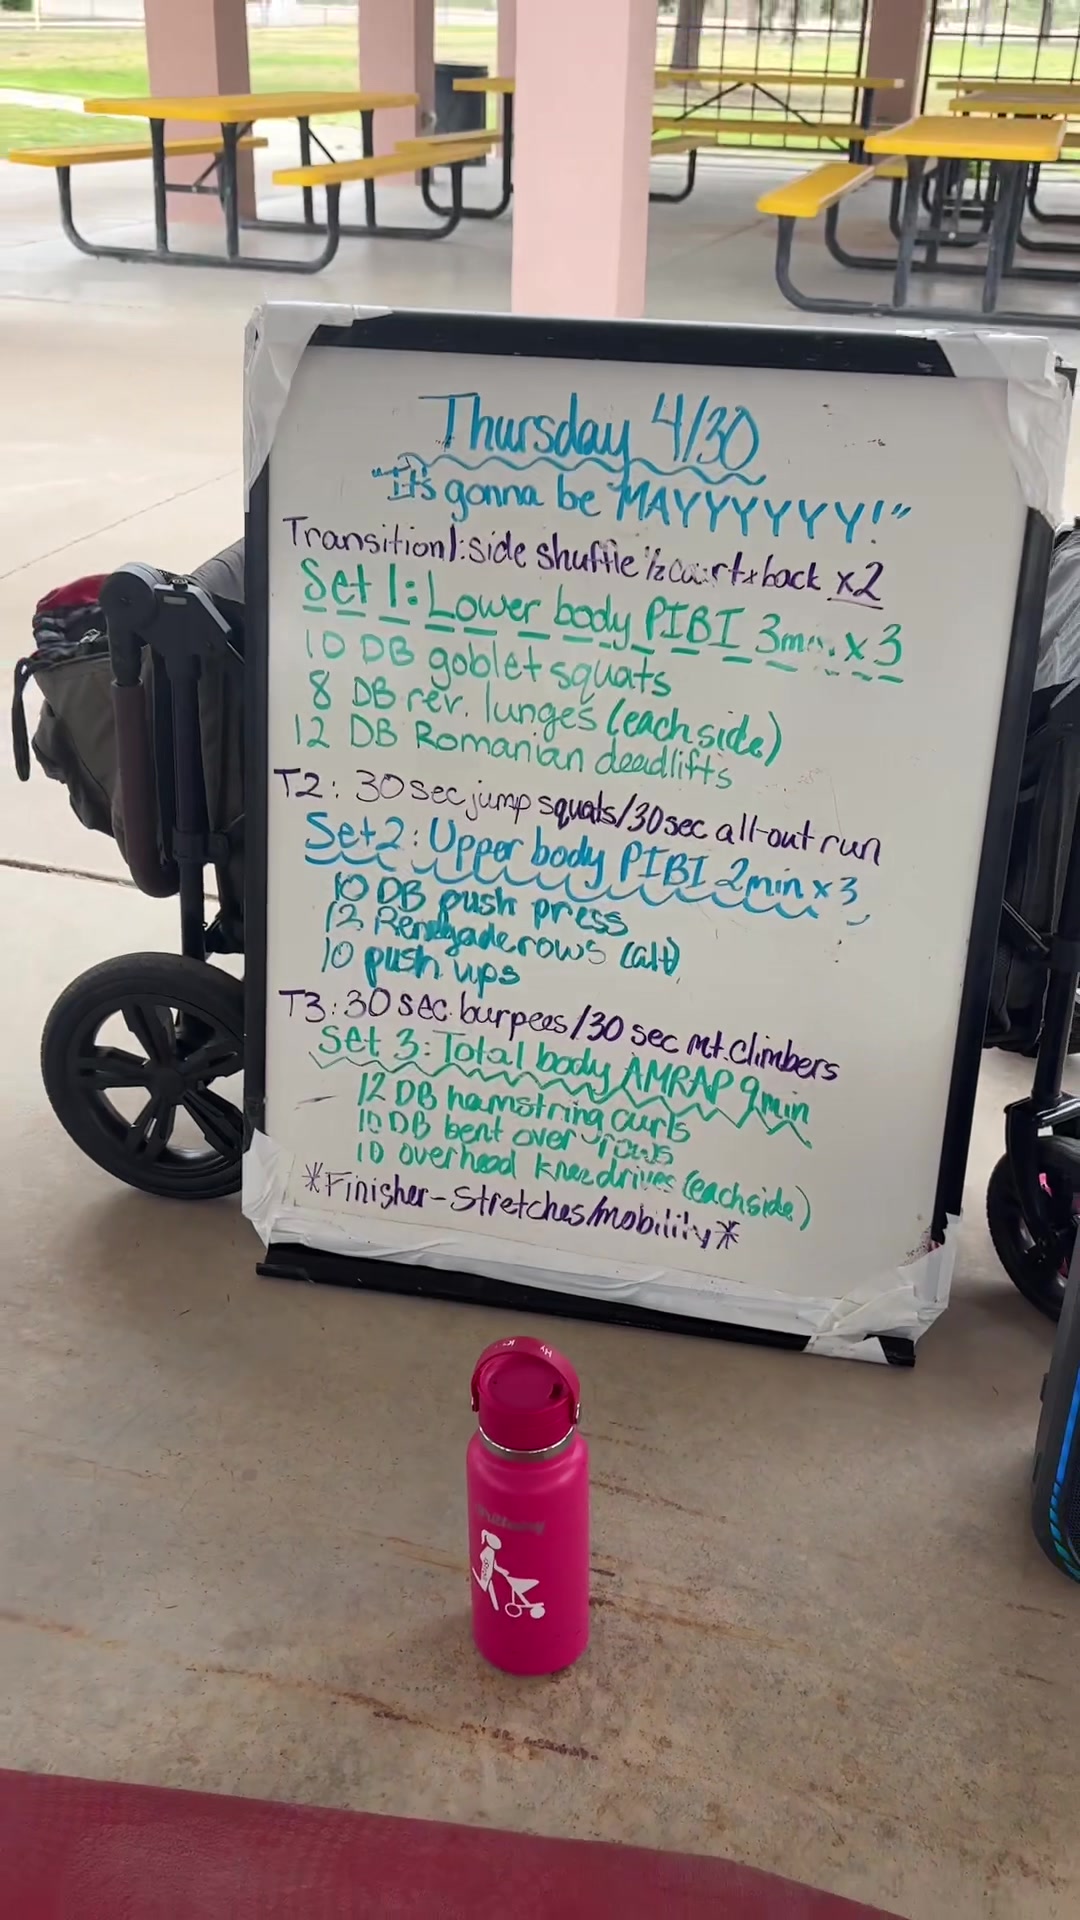 Thursday 4/30
"It's gonna be MAYYYYYYY!"
Transition 1: side shuffle ½ court + back x2
Set 1: Lower body PIBI 3min. x 3
10 DB goblet squats
8 DB rev. lunges (each side)
12 DB Romanian deadlifts
T2: 30 sec jump squats/30 sec all-out run
Set 2: Upper body PIBI 2min x 3
10 DB push press
12 Renegade rows (alt)
10 push ups
T3: 30 sec. burpees/30 sec mt. climbers
Set 3: Total body AMRAP 9min
12 DB hamstring curls
10 DB bent over rows
10 overhead knee drives (each side)
*Finisher - Stretches/mobility*
Hy